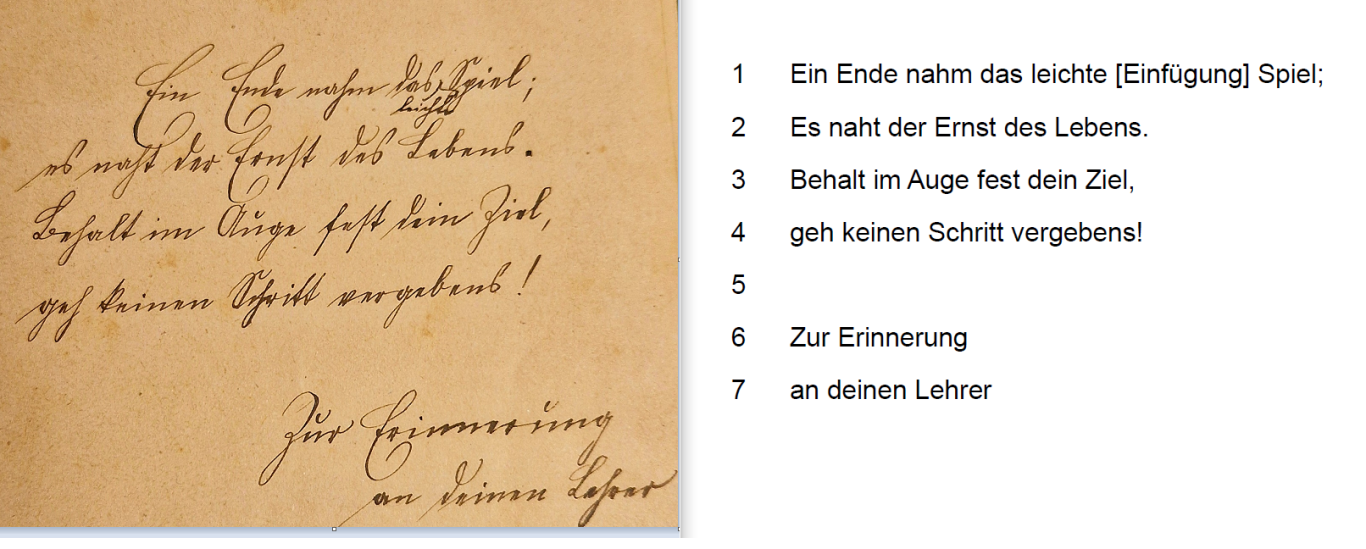 Ein Ende nahm das Spiel;
leichte
es naht der Ernst des Lebens.
Behalt im Auge fest dein Ziel,
geh keinen Schritt vergebens!
Zur Erinnerung
an deinen Lehrer
1 Ein Ende nahm das leichte [Einfügung] Spiel;
2 Es naht der Ernst des Lebens.
3 Behalt im Auge fest dein Ziel,
4 geh keinen Schritt vergebens!
5
6 Zur Erinnerung
7 an deinen Lehrer